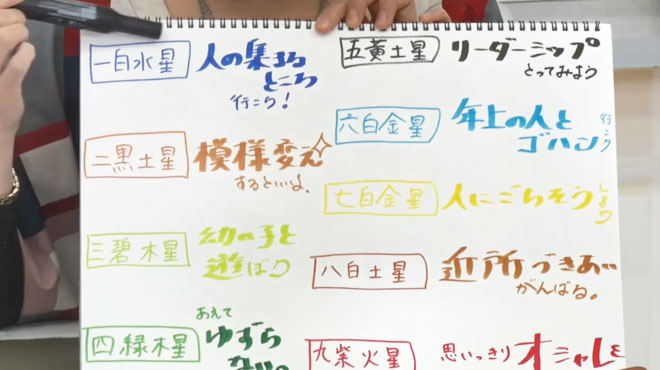 一白水星
人の集まる
ところ
行こう!
二黒土星
模様変え
するといいよ。
三碧木星
幼の子と
遊ぼう
四緑木星
あえて
ゆずら
ない。
五黄土星
リーダーシップ
とってみよう
六白金星
年上の人と
ゴハン
行こう
七白金星
人にごちそう
しよう
八白土星
近所づきあい
がんばる。
九紫火星
思いっきり
オシャレを